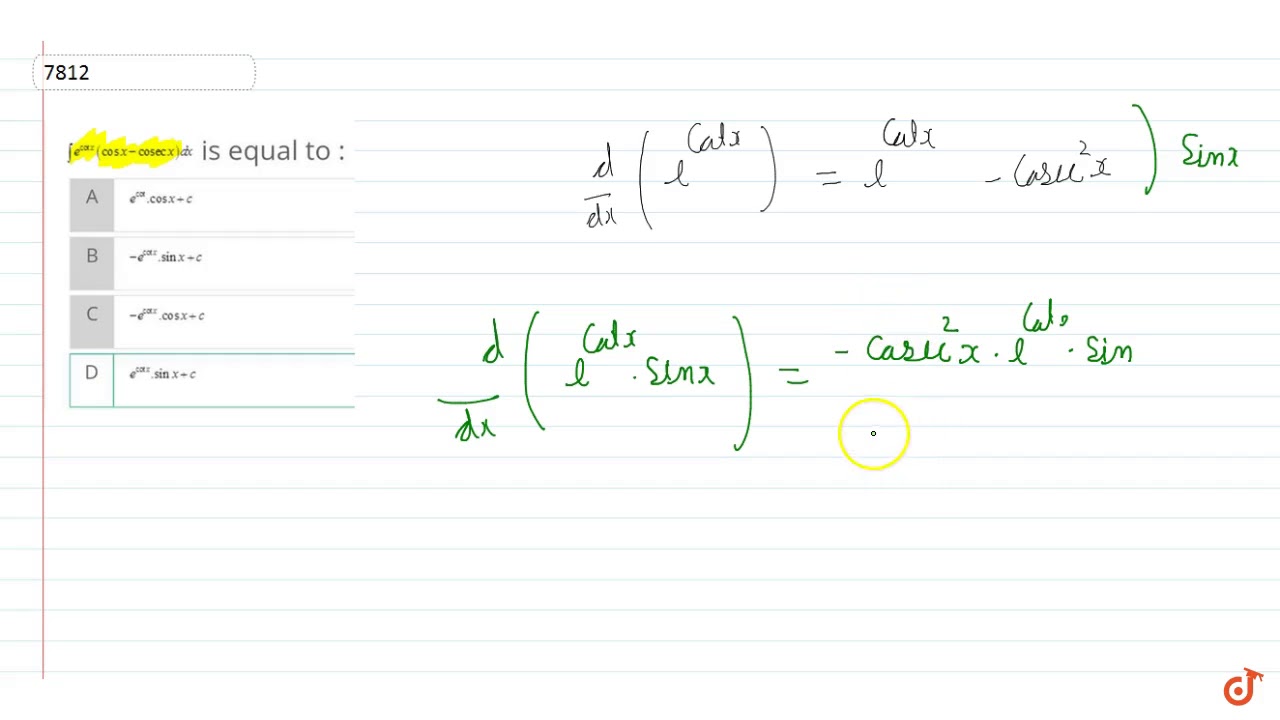 7812
∫e^{cot x}(cos x − cosec x)dx is equal to :
A e^{cot}.cos x + c
B −e^{cot x}.sin x + c
C −e^{cot x}.cos x + c
D e^{cot x}.sin x + c
d/dx (e^{Cotx}) = e^{Cotx} − Cosec²x) Sinx
d/dx (e^{Cotx} . Sinx) = − Cosec²x . e^{Cotx} . Sin